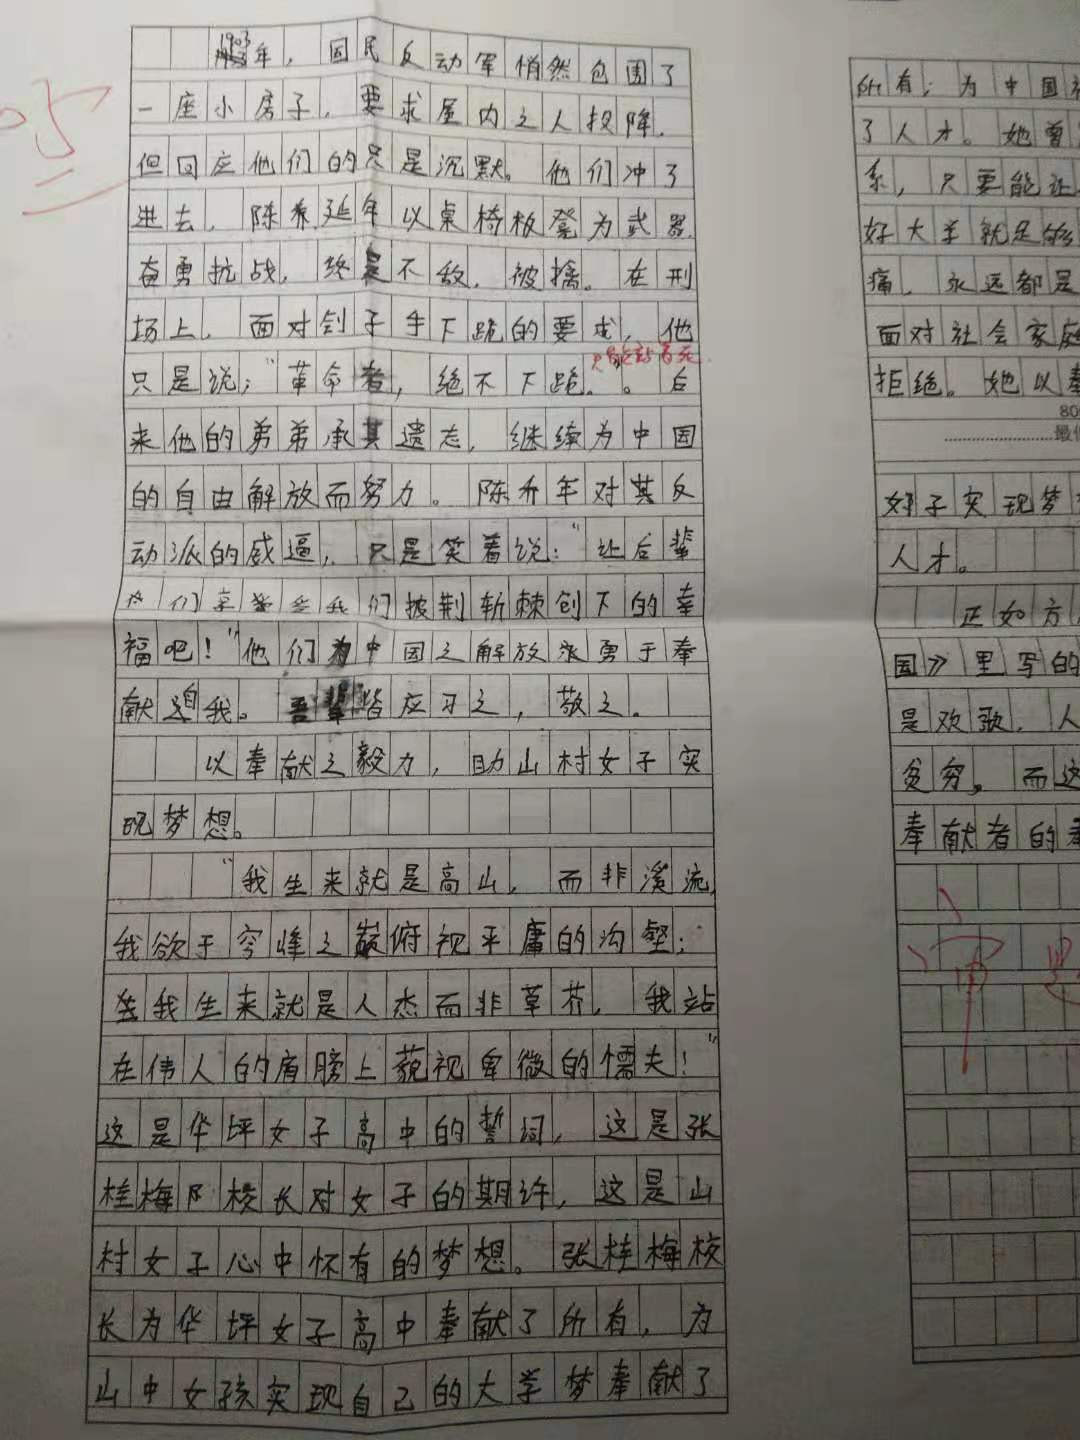 1903年，国民反动军悄然包围了
一座小房子，要求屋内之人投降，
但回应他们的只是沉默。他们冲了
进去，陈延年以桌椅板凳为武器
奋勇抗战，终是不敌，被擒。在刑
场上，面对刽子手下跪的要求，他
只能站着死
只是说："革命者，绝不下跪。"后
来他的弟弟承其遗志，继续为中国
的自由解放而努力。陈乔年对其反
动派的威逼，只是笑着说："让后辈
们享受我们披荆斩棘创下的幸
福吧！"他们为中国之解放勇于奉
献自我。吾辈皆应习之，敬之。
以奉献之毅力，助山村女子实
现梦想。
"我生来就是高山，而非溪流，
我欲于穷峰之巅俯视平庸的沟壑；
我生来就是人杰而非草芥，我站
在伟人的肩膀上藐视卑微的懦夫！"
这是华坪女子高中的誓词，这是张
桂梅校长对女子的期许，这是山
村女子心中怀有的梦想。张桂梅校
长为华坪女子高中奉献了所有，为
山中女孩实现自己的大学梦奉献了
所有；为中国
了人才。她曾
系，只要能让
好大学就足够
痛，永远都是
面对社会家庭
拒绝。她以奉
80
好子实现梦
人才。
正如方
国》里写的
是欢歌，人
贫穷。而这
奉献者的